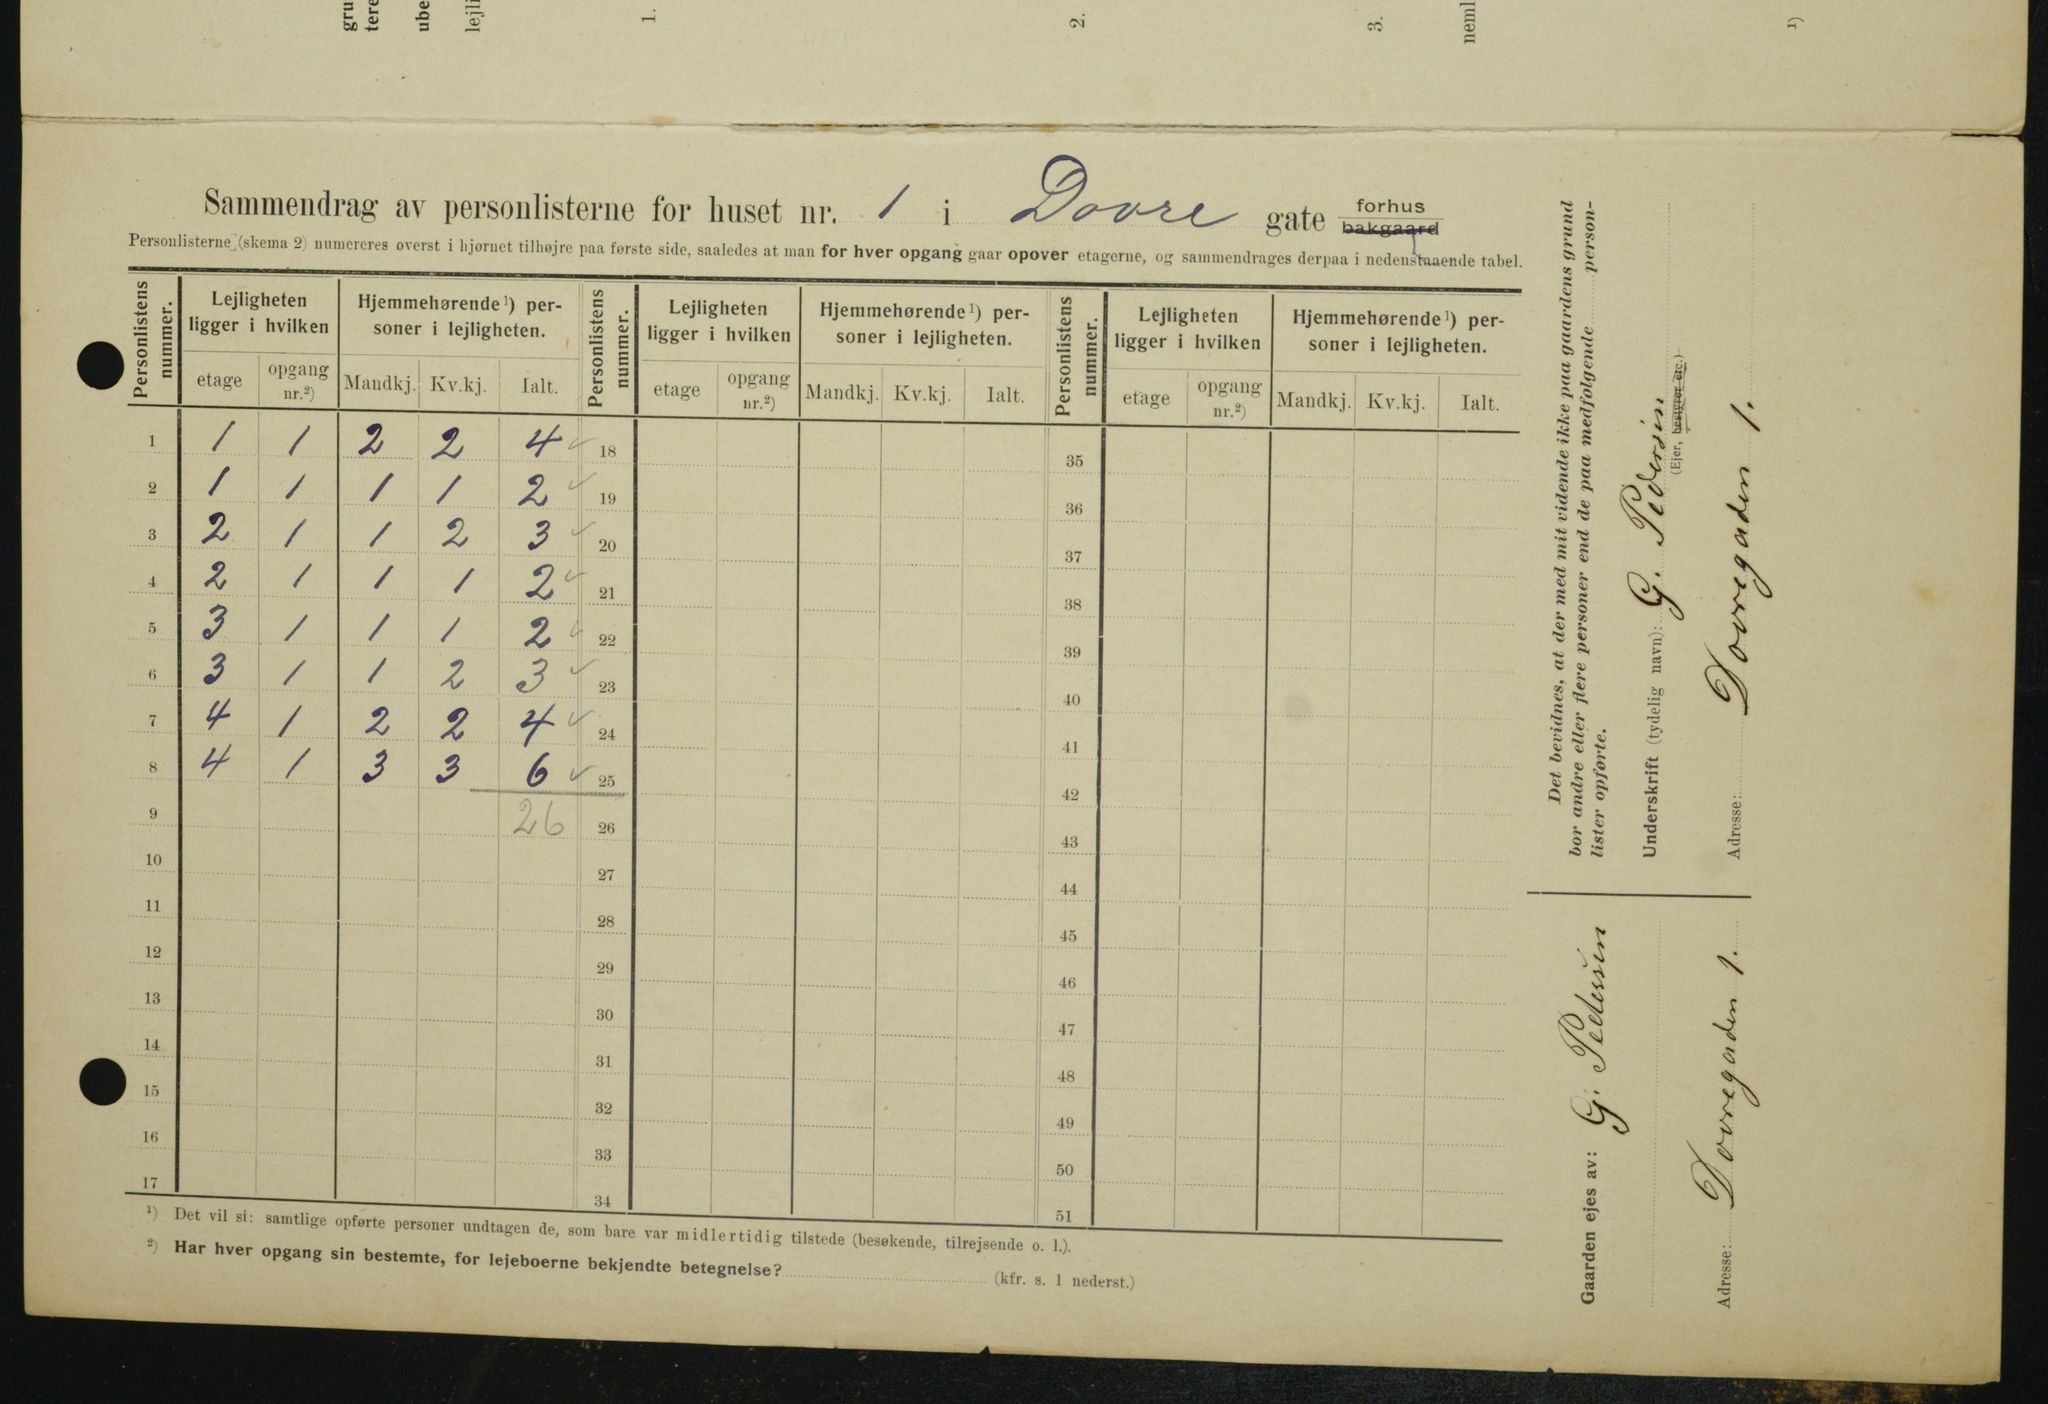 gru
tere
ube
lejli
1.
2.
3.
neml
¹)
Sammendrag av personlisterne for huset nr. 1 i Dovre gate forhus bakgaard
Personlisterne (skema 2) numereres øverst i hjørnet tilhøjre paa første side, saaledes at man for hver opgang gaar opover etagerne, og sammendrages derpaa i nedenstaaende tabel.
Personlistens nummer. Lejligheten ligger i hvilken Hjemmehørende¹) personer i lejligheten. Personlistens nummer. Lejligheten ligger i hvilken Hjemmehørende¹) personer i lejligheten. Personlistens nummer. Lejligheten ligger i hvilken Hjemmehørende¹) personer i lejligheten.
etage opgang nr.²) Mandkj. Kv.kj. Ialt. etage opgang nr.²) Mandkj. Kv.kj. Ialt. etage opgang nr.²) Mandkj. Kv.kj. Ialt.
1 1 1 2 2 4 ✓ 18 35
2 1 1 1 1 2 ✓ 19 36
3 2 1 1 2 3 ✓ 20 37
4 2 1 1 1 2 ✓ 21 38
5 3 1 1 1 2 ✓ 22 39
6 3 1 1 2 3 ✓ 23 40
7 4 1 2 2 4 ✓ 24 41
8 4 1 3 3 6 ✓ 25 42
9 26 26 43
10 27 44
11 28 45
12 29 46
13 30 47
14 31 48
15 32 49
16 33 50
17 34 51
¹) Det vil si: samtlige opførte personer undtagen de, som bare var midlertidig tilstede (besøkende, tilrejsende o. l.).
²) Har hver opgang sin bestemte, for lejeboerne bekjendte betegnelse? (kfr. s. 1 nederst.)
Det bevidnes, at der med mit vidende ikke paa gaardens grund
bor andre eller flere personer end de paa medfølgende person-
lister opførte.
Underskrift (tydelig navn): G. Pedersen
(Ejer, bestyrer etc.)
Adresse: Dovregaden 1.
Gaarden ejes av: G. Pedersen
Adresse: Dovregaden 1.